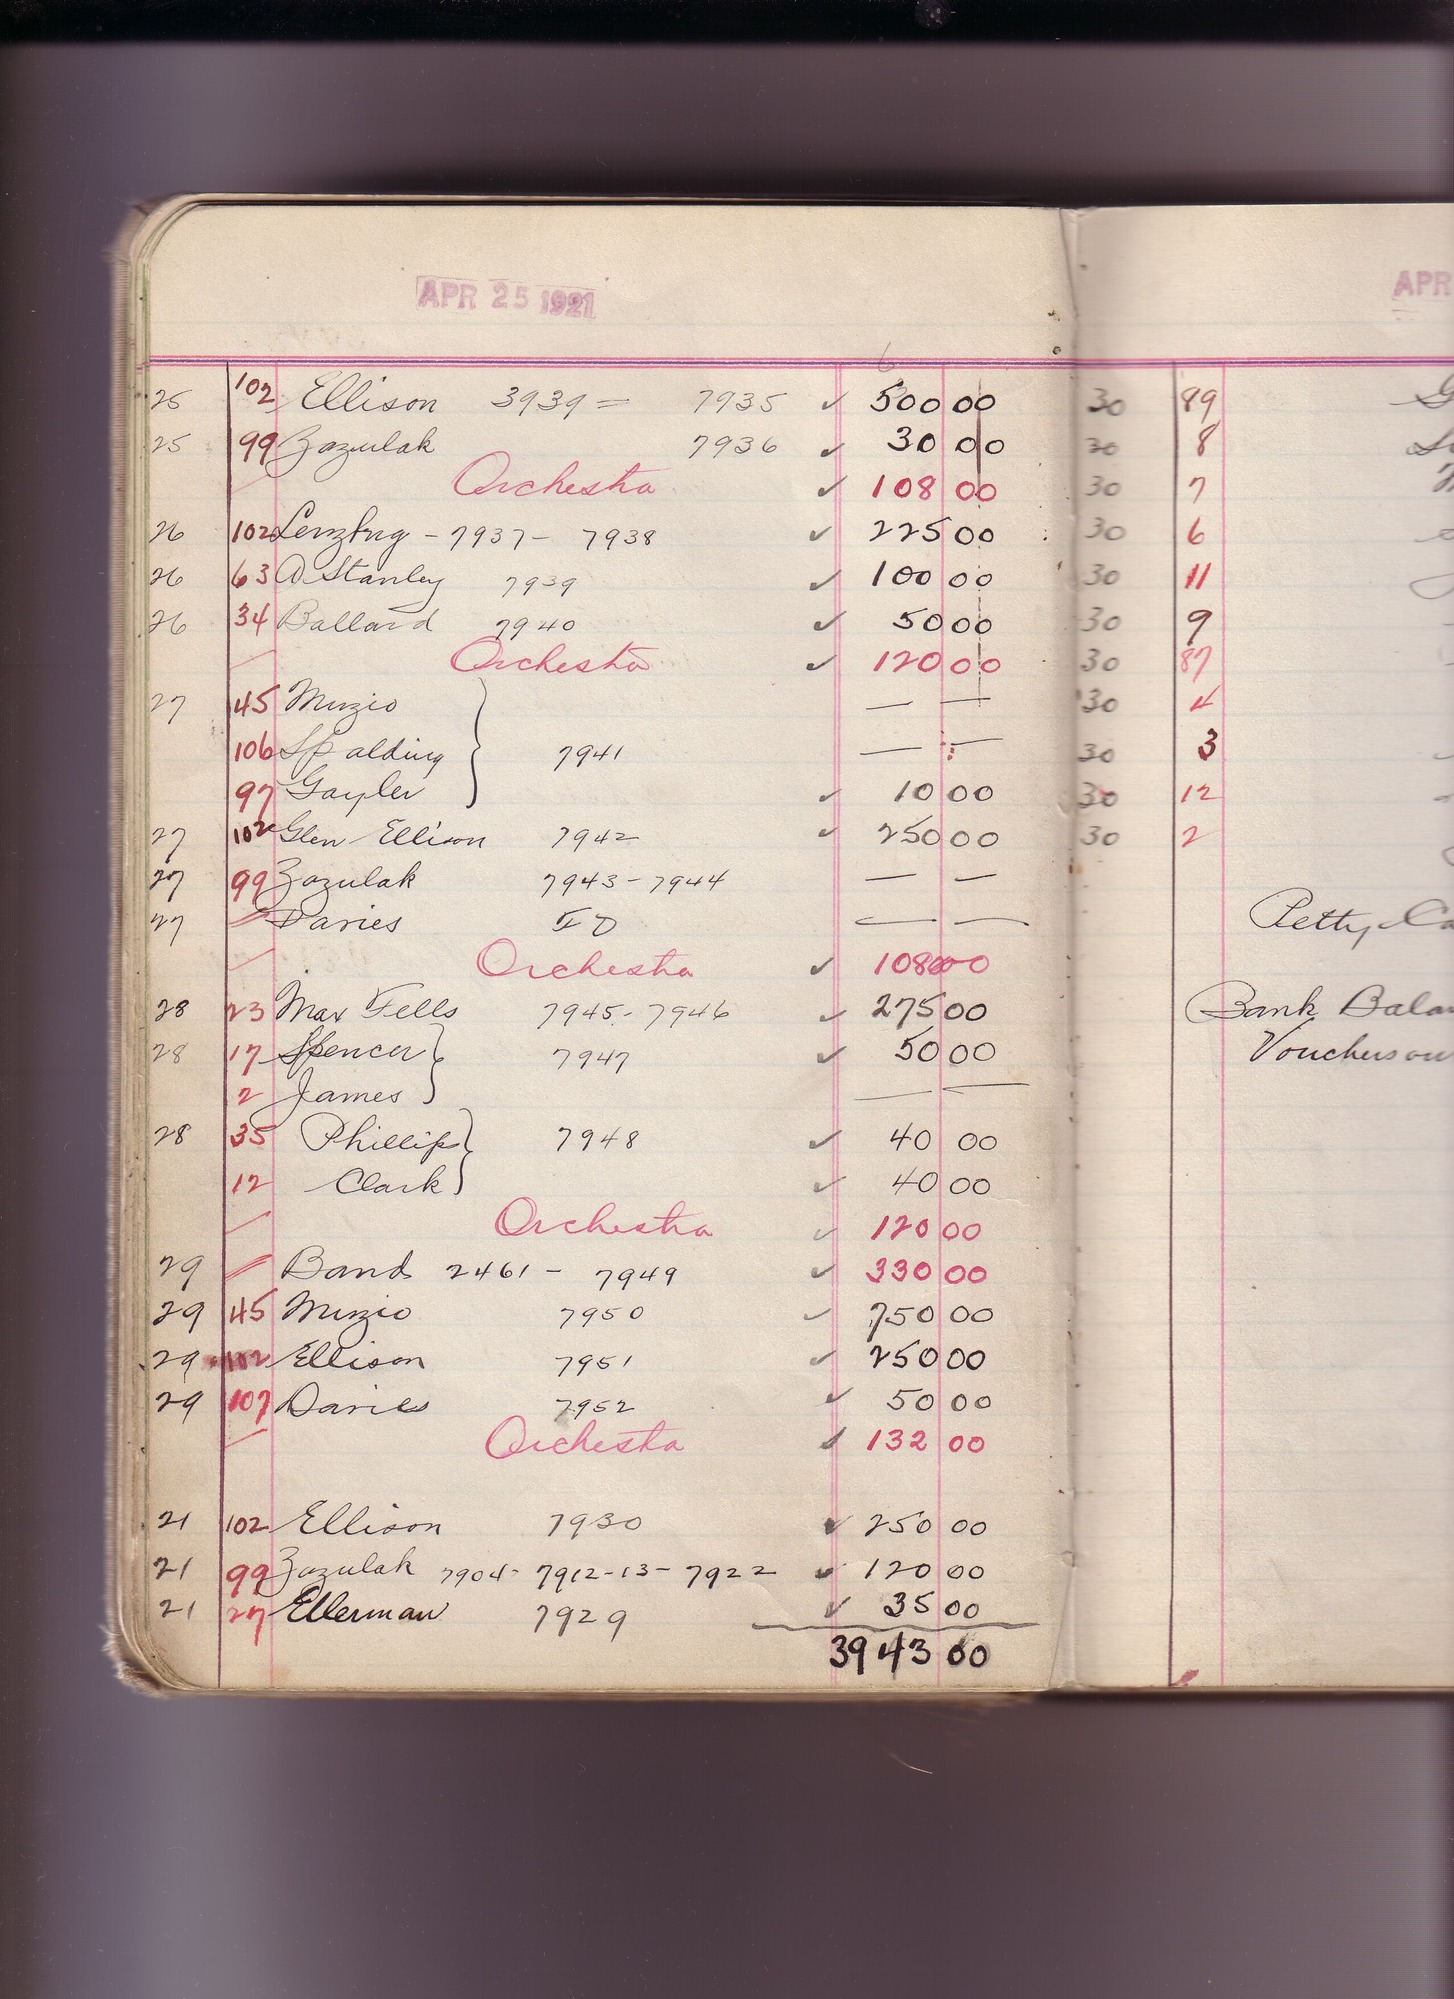 APR 25 1921
25 102 Ellison 3939 = 7935 ✓ 500 00
25 99 Zozulak 7936 ✓ 30 00
Orchestra ✓ 108 00
26 102 Lenzberg - 7937 - 7938 ✓ 225 00
26 63 A Stanley 7939 ✓ 100 00
26 34 Ballard 7940 ✓ 50 00
Orchestra ✓ 120 00
27 45 Muzio — —
106 Spalding 7941 — —
97 Gayler ✓ 10 00
27 102 Glen Ellison 7942 ✓ 250 00
27 99 Zozulak 7943 - 7944 — —
27 Davies — —
Orchestra ✓ 108 00
28 23 Max Fells 7945 - 7946 ✓ 275 00
28 17 Spencer 7947 ✓ 50 00
2 James — —
28 35 Phillips 7948 ✓ 40 00
12 Clark ✓ 40 00
Orchestra ✓ 120 00
29 Band 2461 - 7949 ✓ 330 00
29 45 Muzio 7950 ✓ 750 00
29 102 Ellison 7951 ✓ 250 00
29 107 Davies 7952 ✓ 50 00
Orchestra ✓ 132 00
21 102 Ellison 7930 ✓ 250 00
21 99 Zozulak 7904 - 7912-13 - 7922 ✓ 120 00
21 27 Ellerman 7929 ✓ 35 00
3943 00
APR
30 89
30 8
30 7
30 6
30 11
30 9
30 87
30 4
30 3
30 12
30 2
Petty Ca
Bank Bala
Vouchers ou